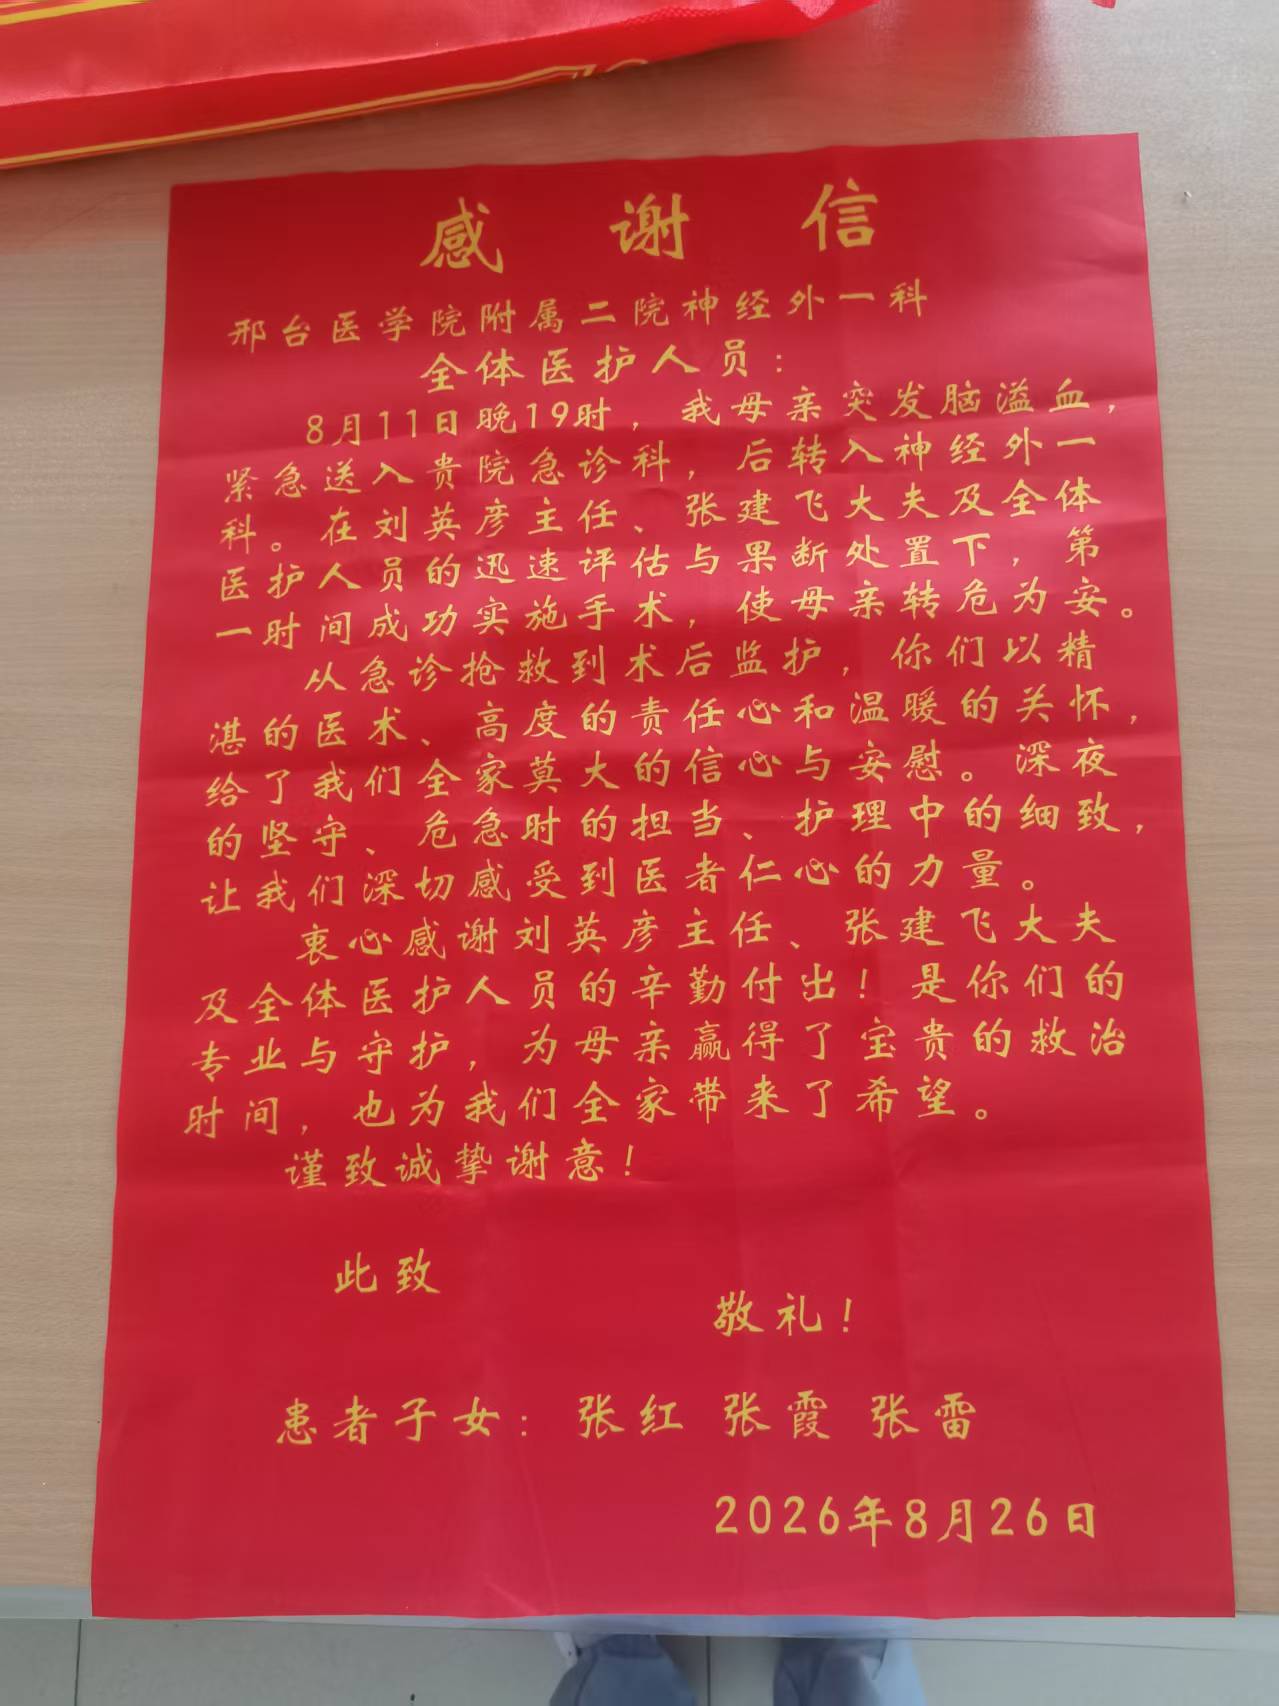 感谢信
邢台医学院附属二院神经外一科
全体医护人员：
8月11日晚19时，我母亲突发脑溢血，
紧急送入贵院急诊科，后转入神经外一
科。在刘英彦主任、张建飞大夫及全体
医护人员的迅速评估与果断处置下，第
一时间成功实施手术，使母亲转危为安。
从急诊抢救到术后监护，你们以精
湛的医术、高度的责任心和温暖的关怀，
给了我们全家莫大的信心与安慰。深夜
的坚守、危急时的担当、护理中的细致，
让我们深切感受到医者仁心的力量。
衷心感谢刘英彦主任、张建飞大夫
及全体医护人员的辛勤付出！是你们的
专业与守护，为母亲赢得了宝贵的救治
时间，也为我们全家带来了希望。
谨致诚挚谢意！
此致
敬礼！
患者子女：张红 张霞 张雷
2026年8月26日